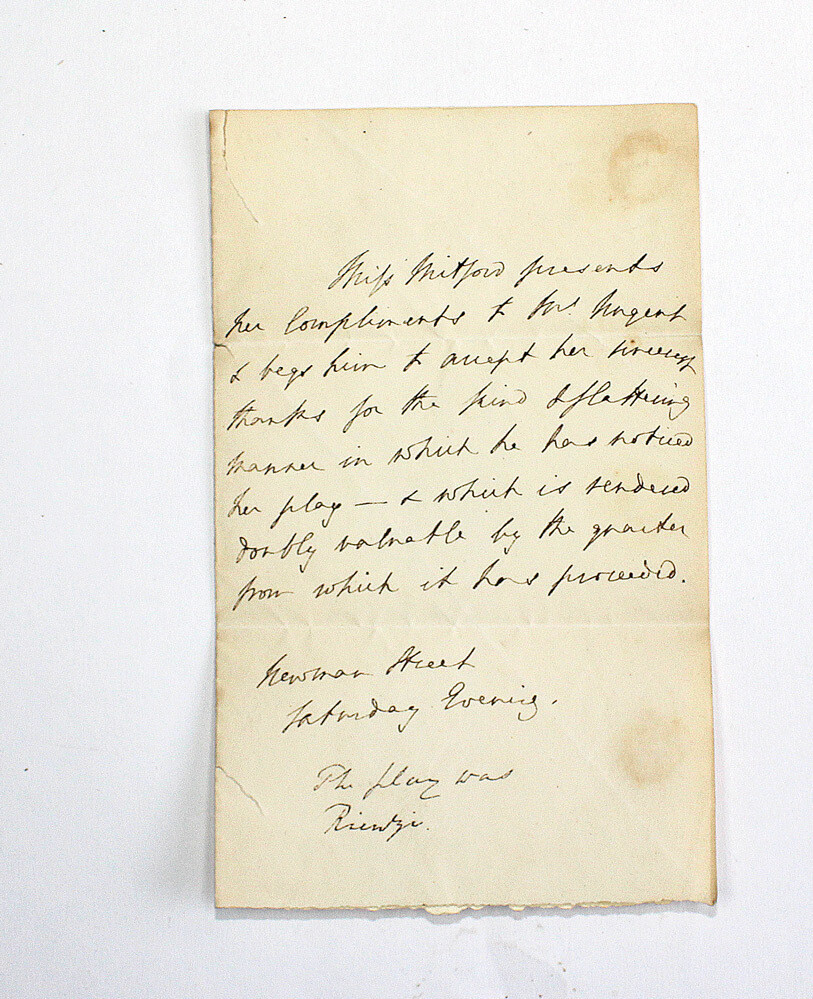 Miss Mitford presents
her Compliments to Mr. Nugent
& begs him to accept her sincerest
thanks for the kind & flattering
manner in which he has noticed
her play — & which is rendered
doubly valuable by the quarter
from which it has proceeded.
Newman Street
Saturday Evening.
The play was
Rienzi.